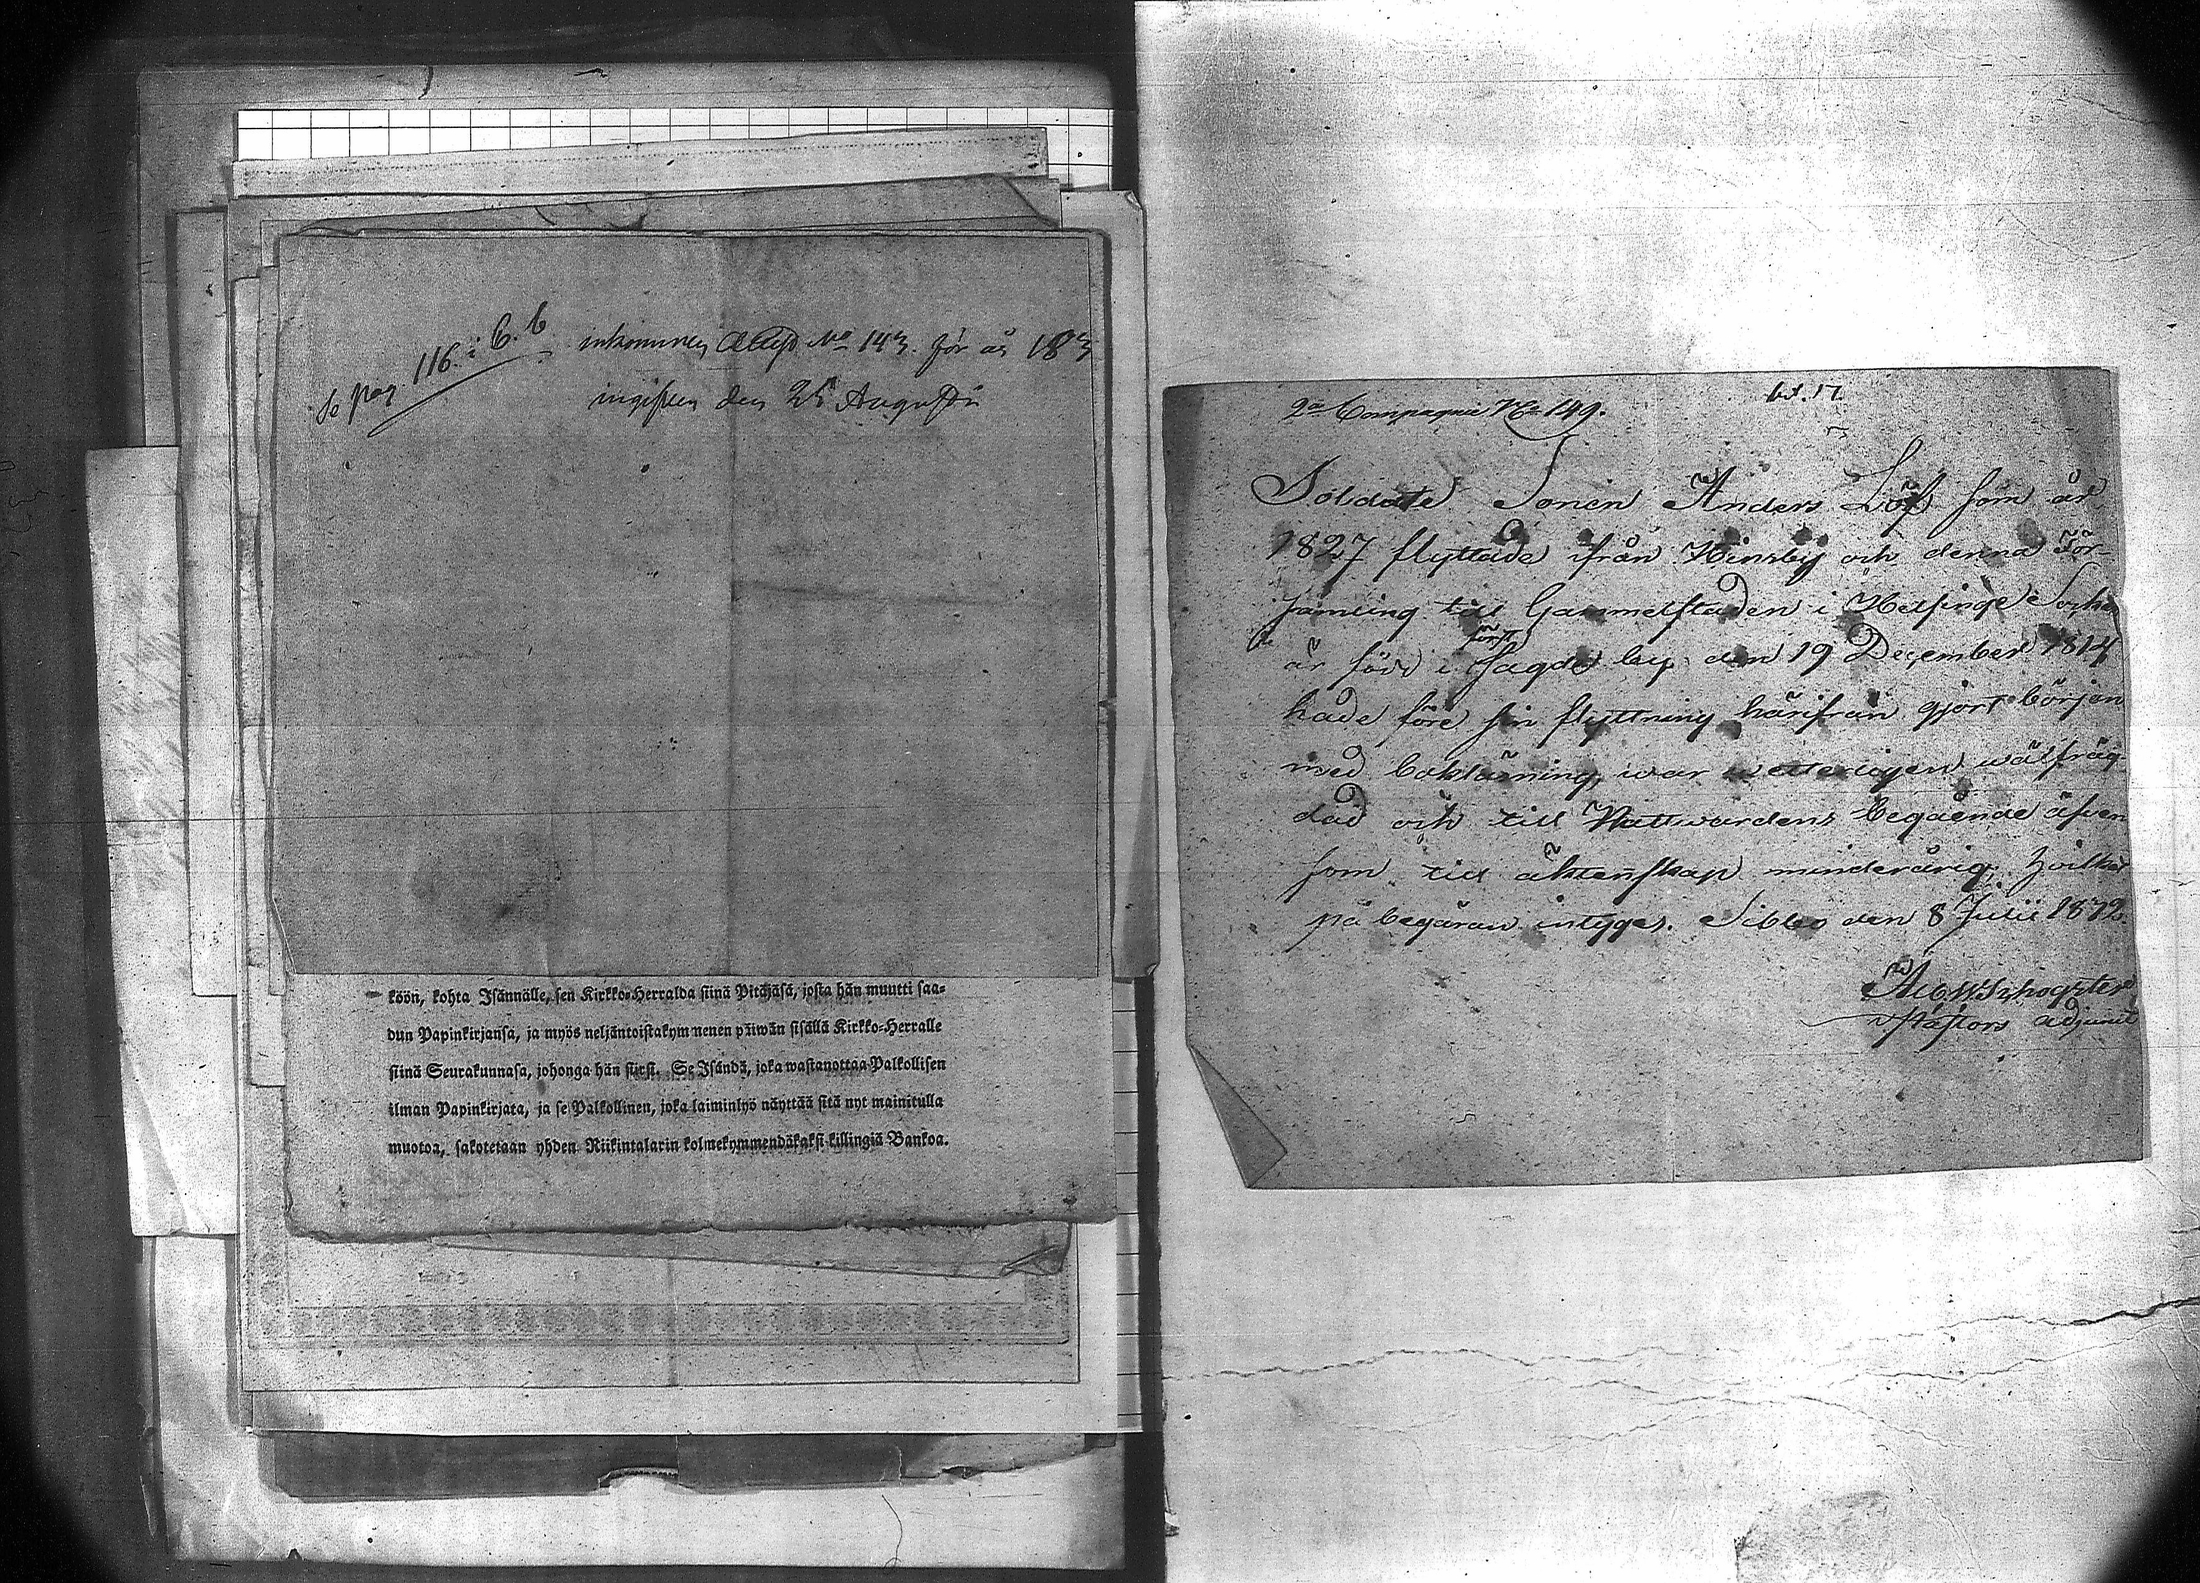 Se pag. 116. i C. b
inkommen No 143. för år 183
ingifven den 25 Augusti
köön, kohta Isännälle, sen Kirkko-Herralda siinä Pitäjäsä, josta hän muutti saa-
dun Papinkirjansa, ja myös neljäntoistakymmenen päiwän sisällä Kirkko-Herralle
siinä Seurakunnasa, johonga hän siirsi. Se Isändä, joka wastanottaa Palkollisen
ilman Papinkirjata, ja se Palkollinen, joka laiminlyö näyttää sitä nyt mainitulla
muotoa, sakotetaan yhden Riikintalarin kolmekymmendäkaksi killingiä Bankoa.
2a Compagnie No 149.
bil. 17.
Soldate Sonen Anders Löf som år
1827 flyttade ifrån Hinsby och denna För-
samling till Gammelstaden i Helsinge Sockn
är född i först by den 19 December 1814
hade före sin flyttning härifrån gjort början
med bokläsning, war wälfräg-
dad och till Nattwardens begående äfven
som till äktenskap minderårig, hvilket
på begäran intyges. Sibbo den 8 Julii 18
Pastors adjunct